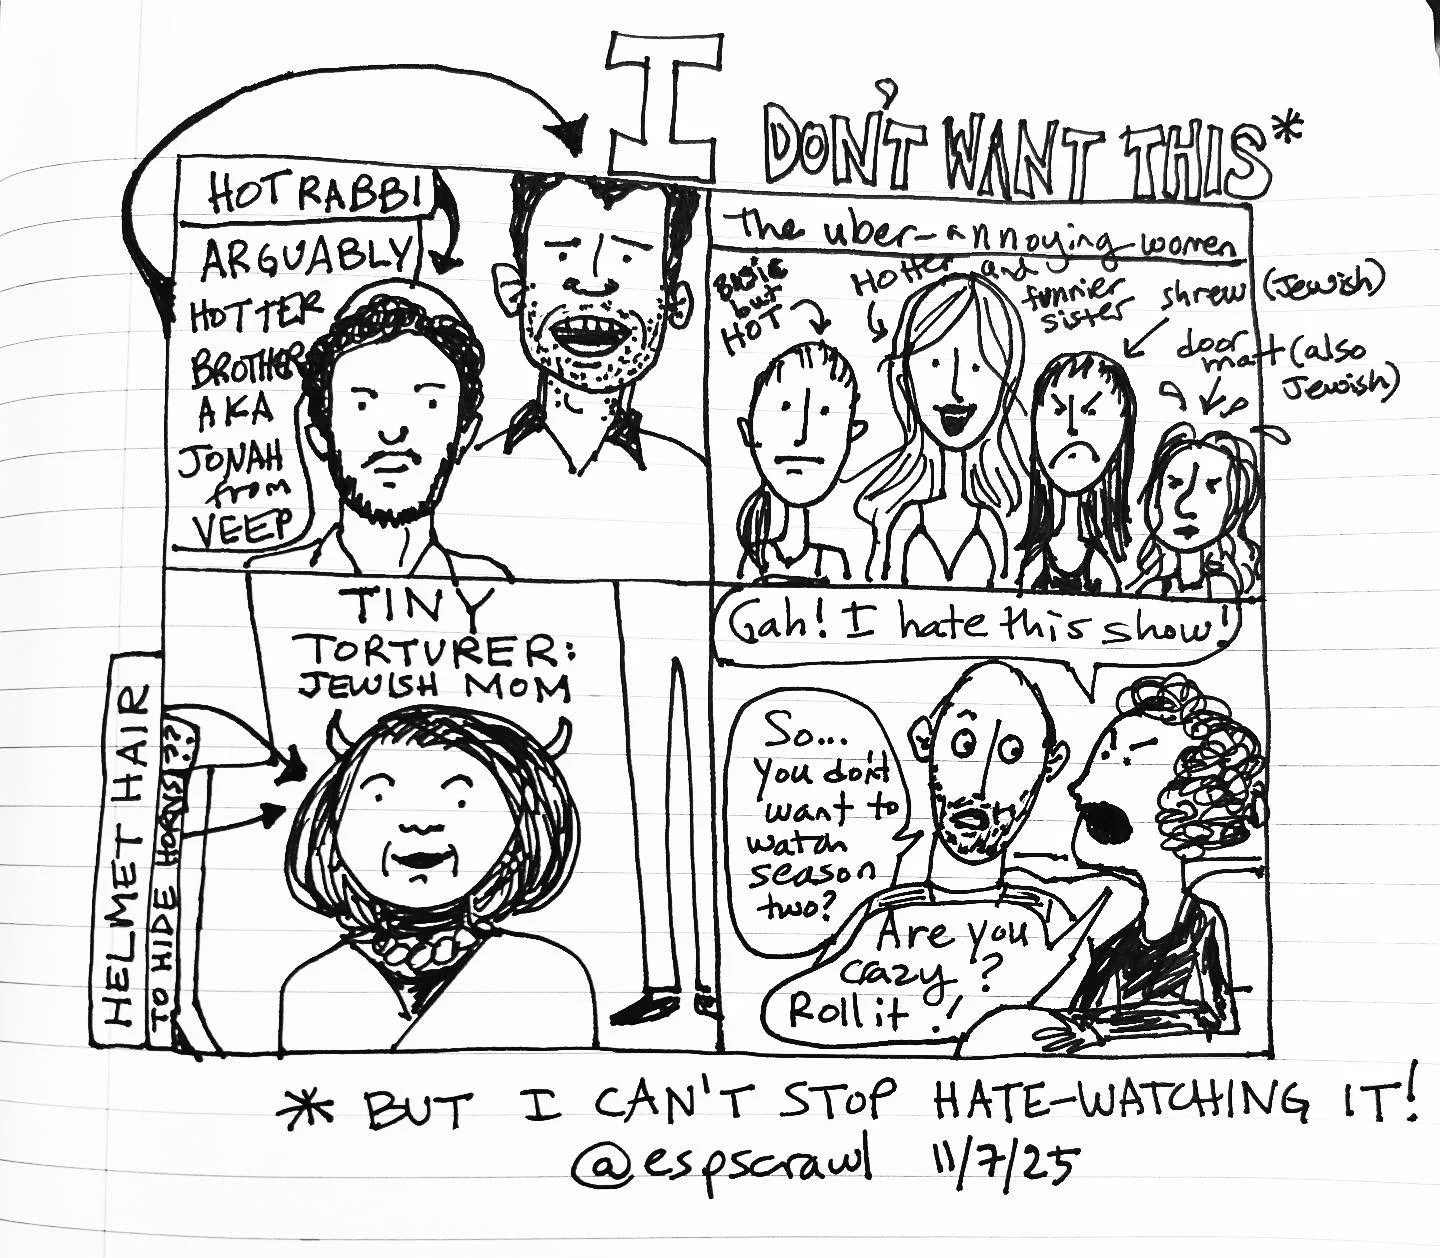 I
DON'T WANT THIS*
HOT RABBI
ARGUABLY
HOTTER
BROTHER
AKA
JONAH
from
VEEP
the uber-annoying women
Basic
but
HOT
Hotter and
funnier
sister
shrew (Jewish)
door
matt (also
Jewish)
TINY
TORTURER:
JEWISH MOM
HELMET HAIR
TO HIDE HORNS??
Gah! I hate this show!
So...
you don't
want to
watch
season
two?
Are you
crazy?
Roll it!
* BUT I CAN'T STOP HATE-WATCHING IT!
@espscrawl 11/7/25